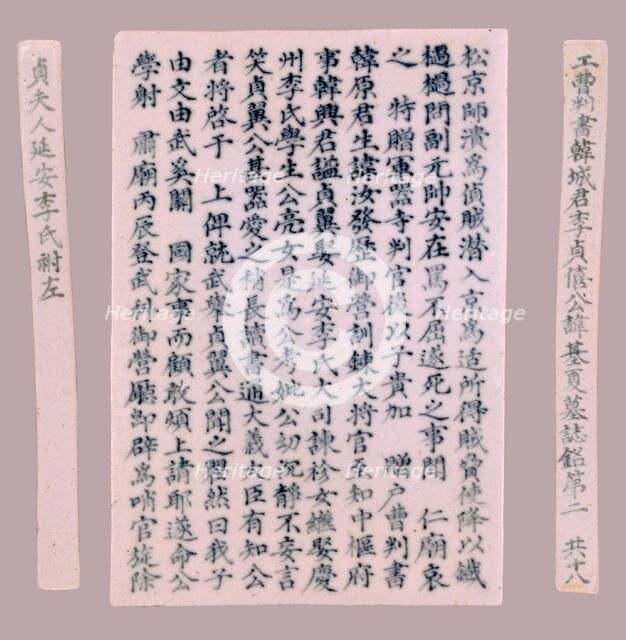 工曹判書韓城君李貞僖公諱基夏墓誌銘第二 共十八
松京師潰爲偵賊潜入京爲适所得賊脅使降以鐵
檛檛問副元帥安在罵不屈遂死之事聞 仁廟哀
之 特贈軍器寺判官後以子貴加 贈戶曹判書
韓原君生諱汝發歷御營訓鍊大將官至知中樞府
事韓興君謚貞翼娶延安李氏大司諫袗女繼娶慶
州李氏學生公亮女是爲公考妣公幼沉靜不妄言
笑貞翼公甚器愛之稍長讀書通大義 臣有知公
者將啓于 上俾就武擧貞翼公聞之瞿然曰我子
由文由武奚關 國家事而顧敢煩上請耶遂命公
學射 肅廟丙辰登武科御營廳卽辟爲哨官旋除
貞夫人延安李氏祔左
Heritage
Heritage
Heritage
Heritage
Heritage
Heritage